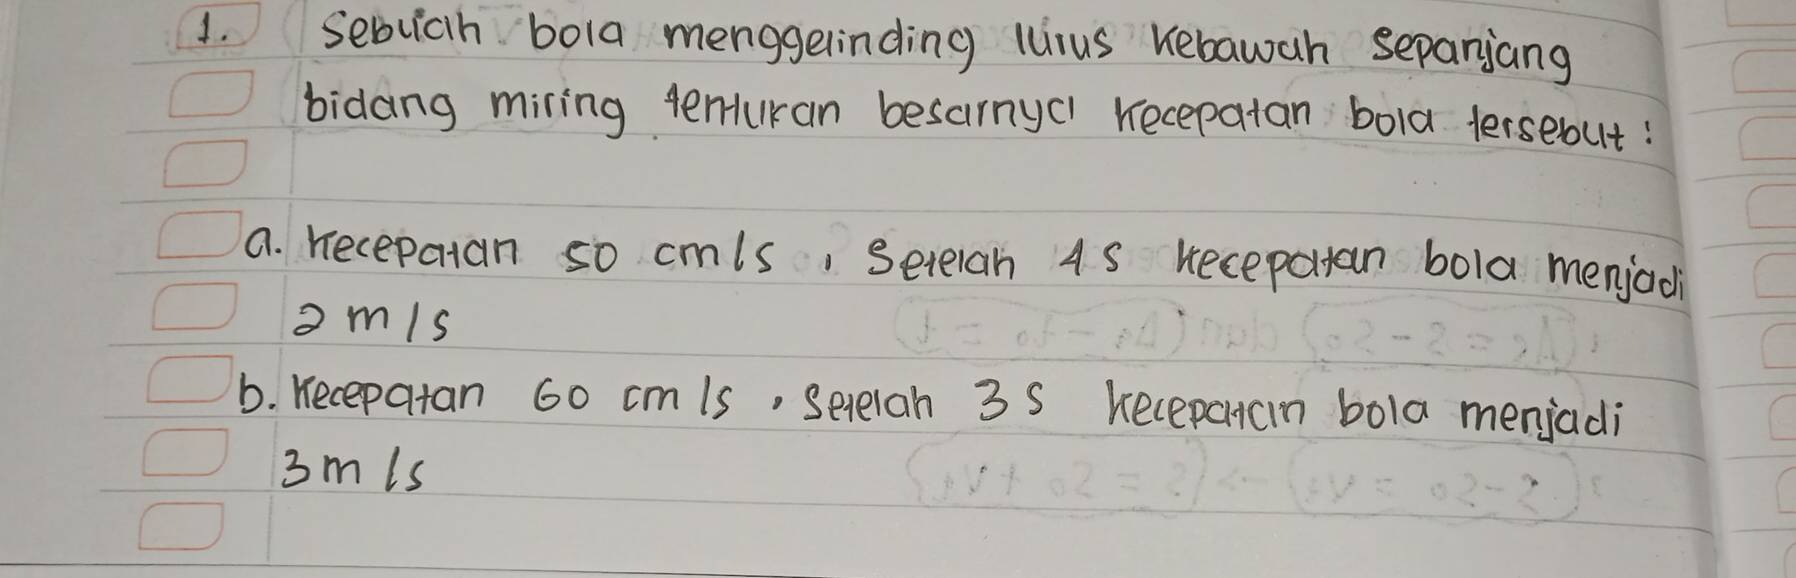 1. Sebuah bola menggelinding lurus kebawah sepanjang
bidang miring tentukan besarnya kecepatan bola tersebut:
a. kecepatan 50 cm/s, setelah 4s kecepatan bola menjadi
2 m/s
b. kecepatan 60 cm/s, setelah 3s kecepatan bola menjadi
3 m/s